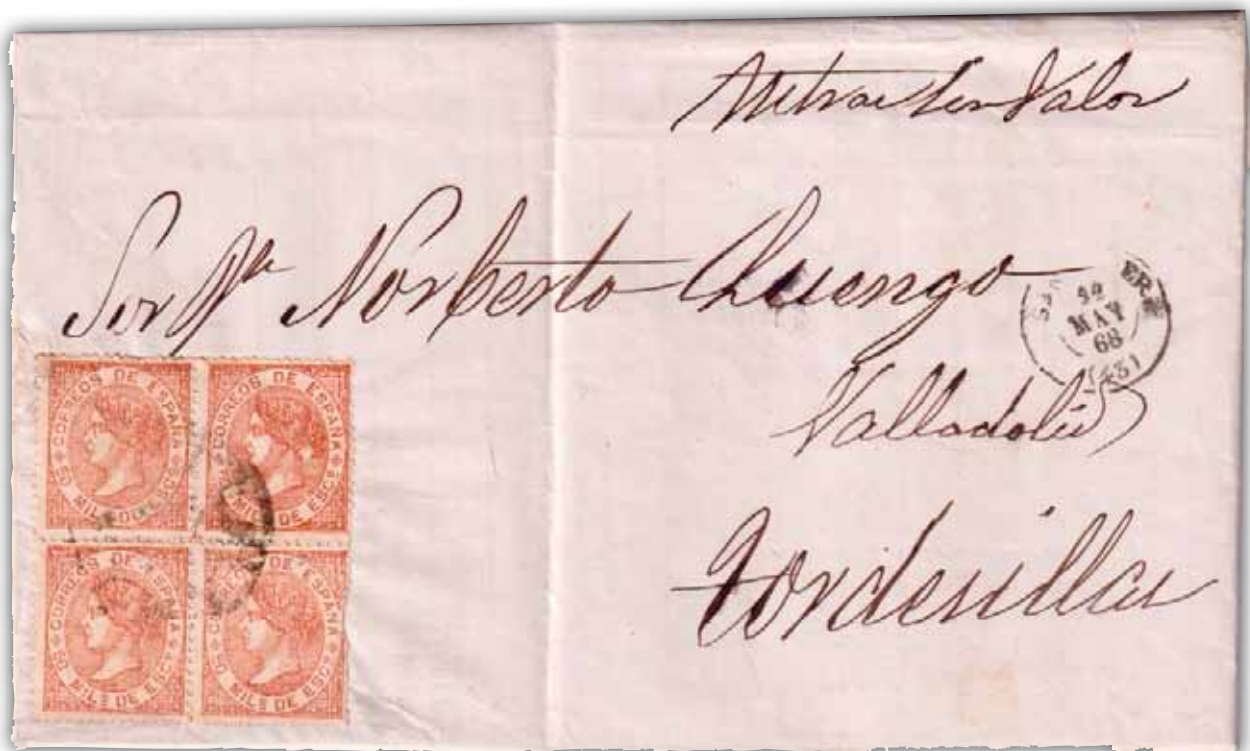 sin Valor
Sor Dn Norberto Luengo
22
MAY
68
Valladolid
Tordesillas
CORREOS DE ESPAÑA
MILS DE ESCO
CORREOS DE ESPAÑA
MILS DE ESCO
CORREOS DE ESPAÑA
MILS DE ESCO
CORREOS DE ESPAÑA
MILS DE ESCO